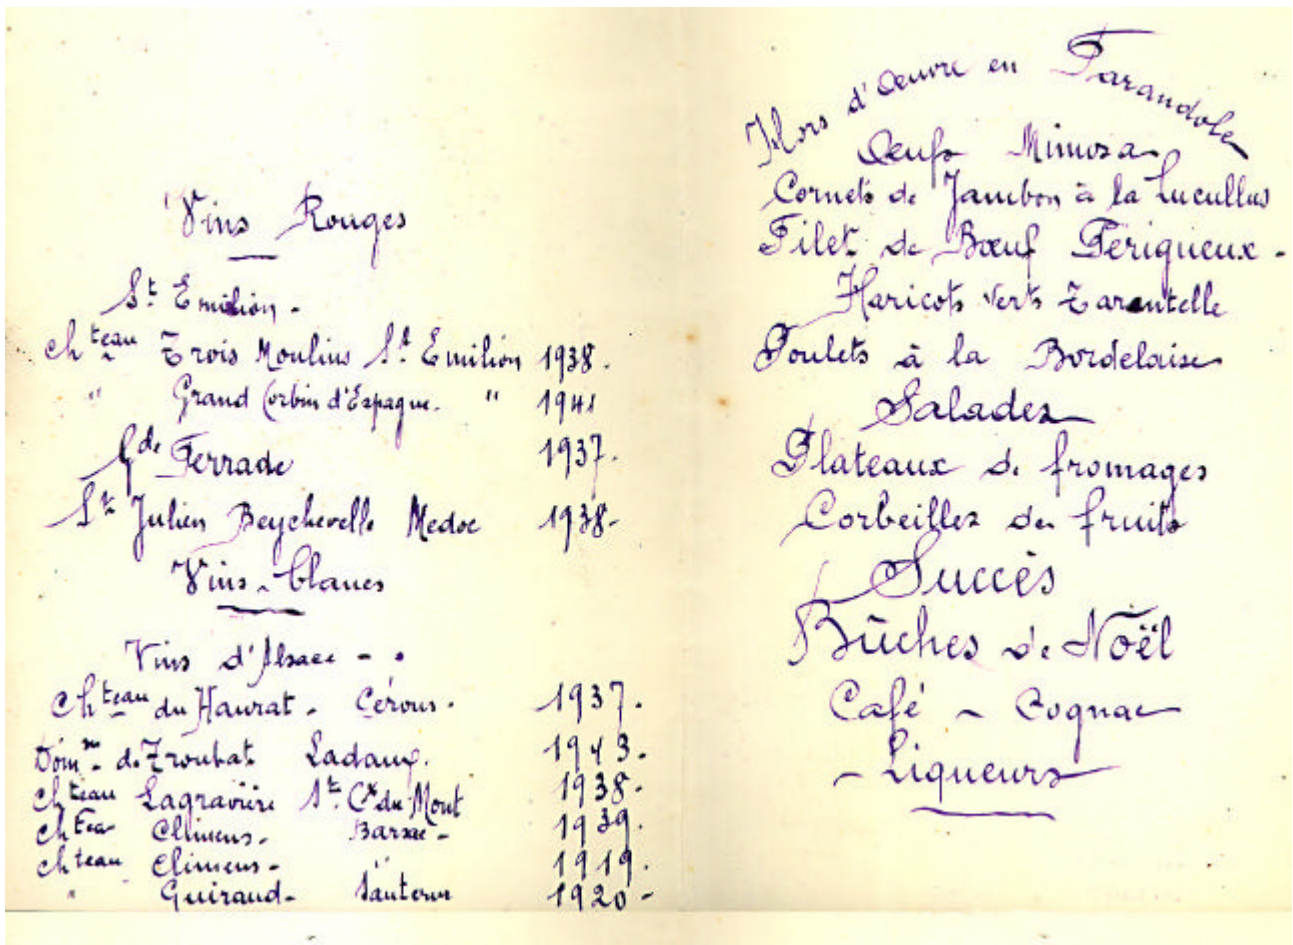 Vins Rouges
St Emilion -
Chteau Trois Moulins St Emilion 1938.
" Grand Corbin d'Espagne. " 1941
Gde Ferrade 1937.
St Julien Beychevelle Medoc 1938-
Vins - blancs
Vins d'Alsace - -
Chteau du Haurat - Cérons - 1937.
Domne de Troubat Ladaux. 1943.
Chteau Lagravière Ste Cx du Mont 1938-
Chteau Climens - Barsac - 1939.
Chteau Climens - " 1919.
" Guiraud - Sauternes 1920 -
Hors d'Œuvre en Farandole
Œufs Mimosa
Cornets de Jambon à la Lucullus
Filet de Bœuf Perigueux -
Haricots verts Tarentelle
Poulets à la Bordelaise
Salades
Plateaux de fromages
Corbeilles de fruits
Succès
Bûches de Noël
Café - Cognac
- Liqueurs